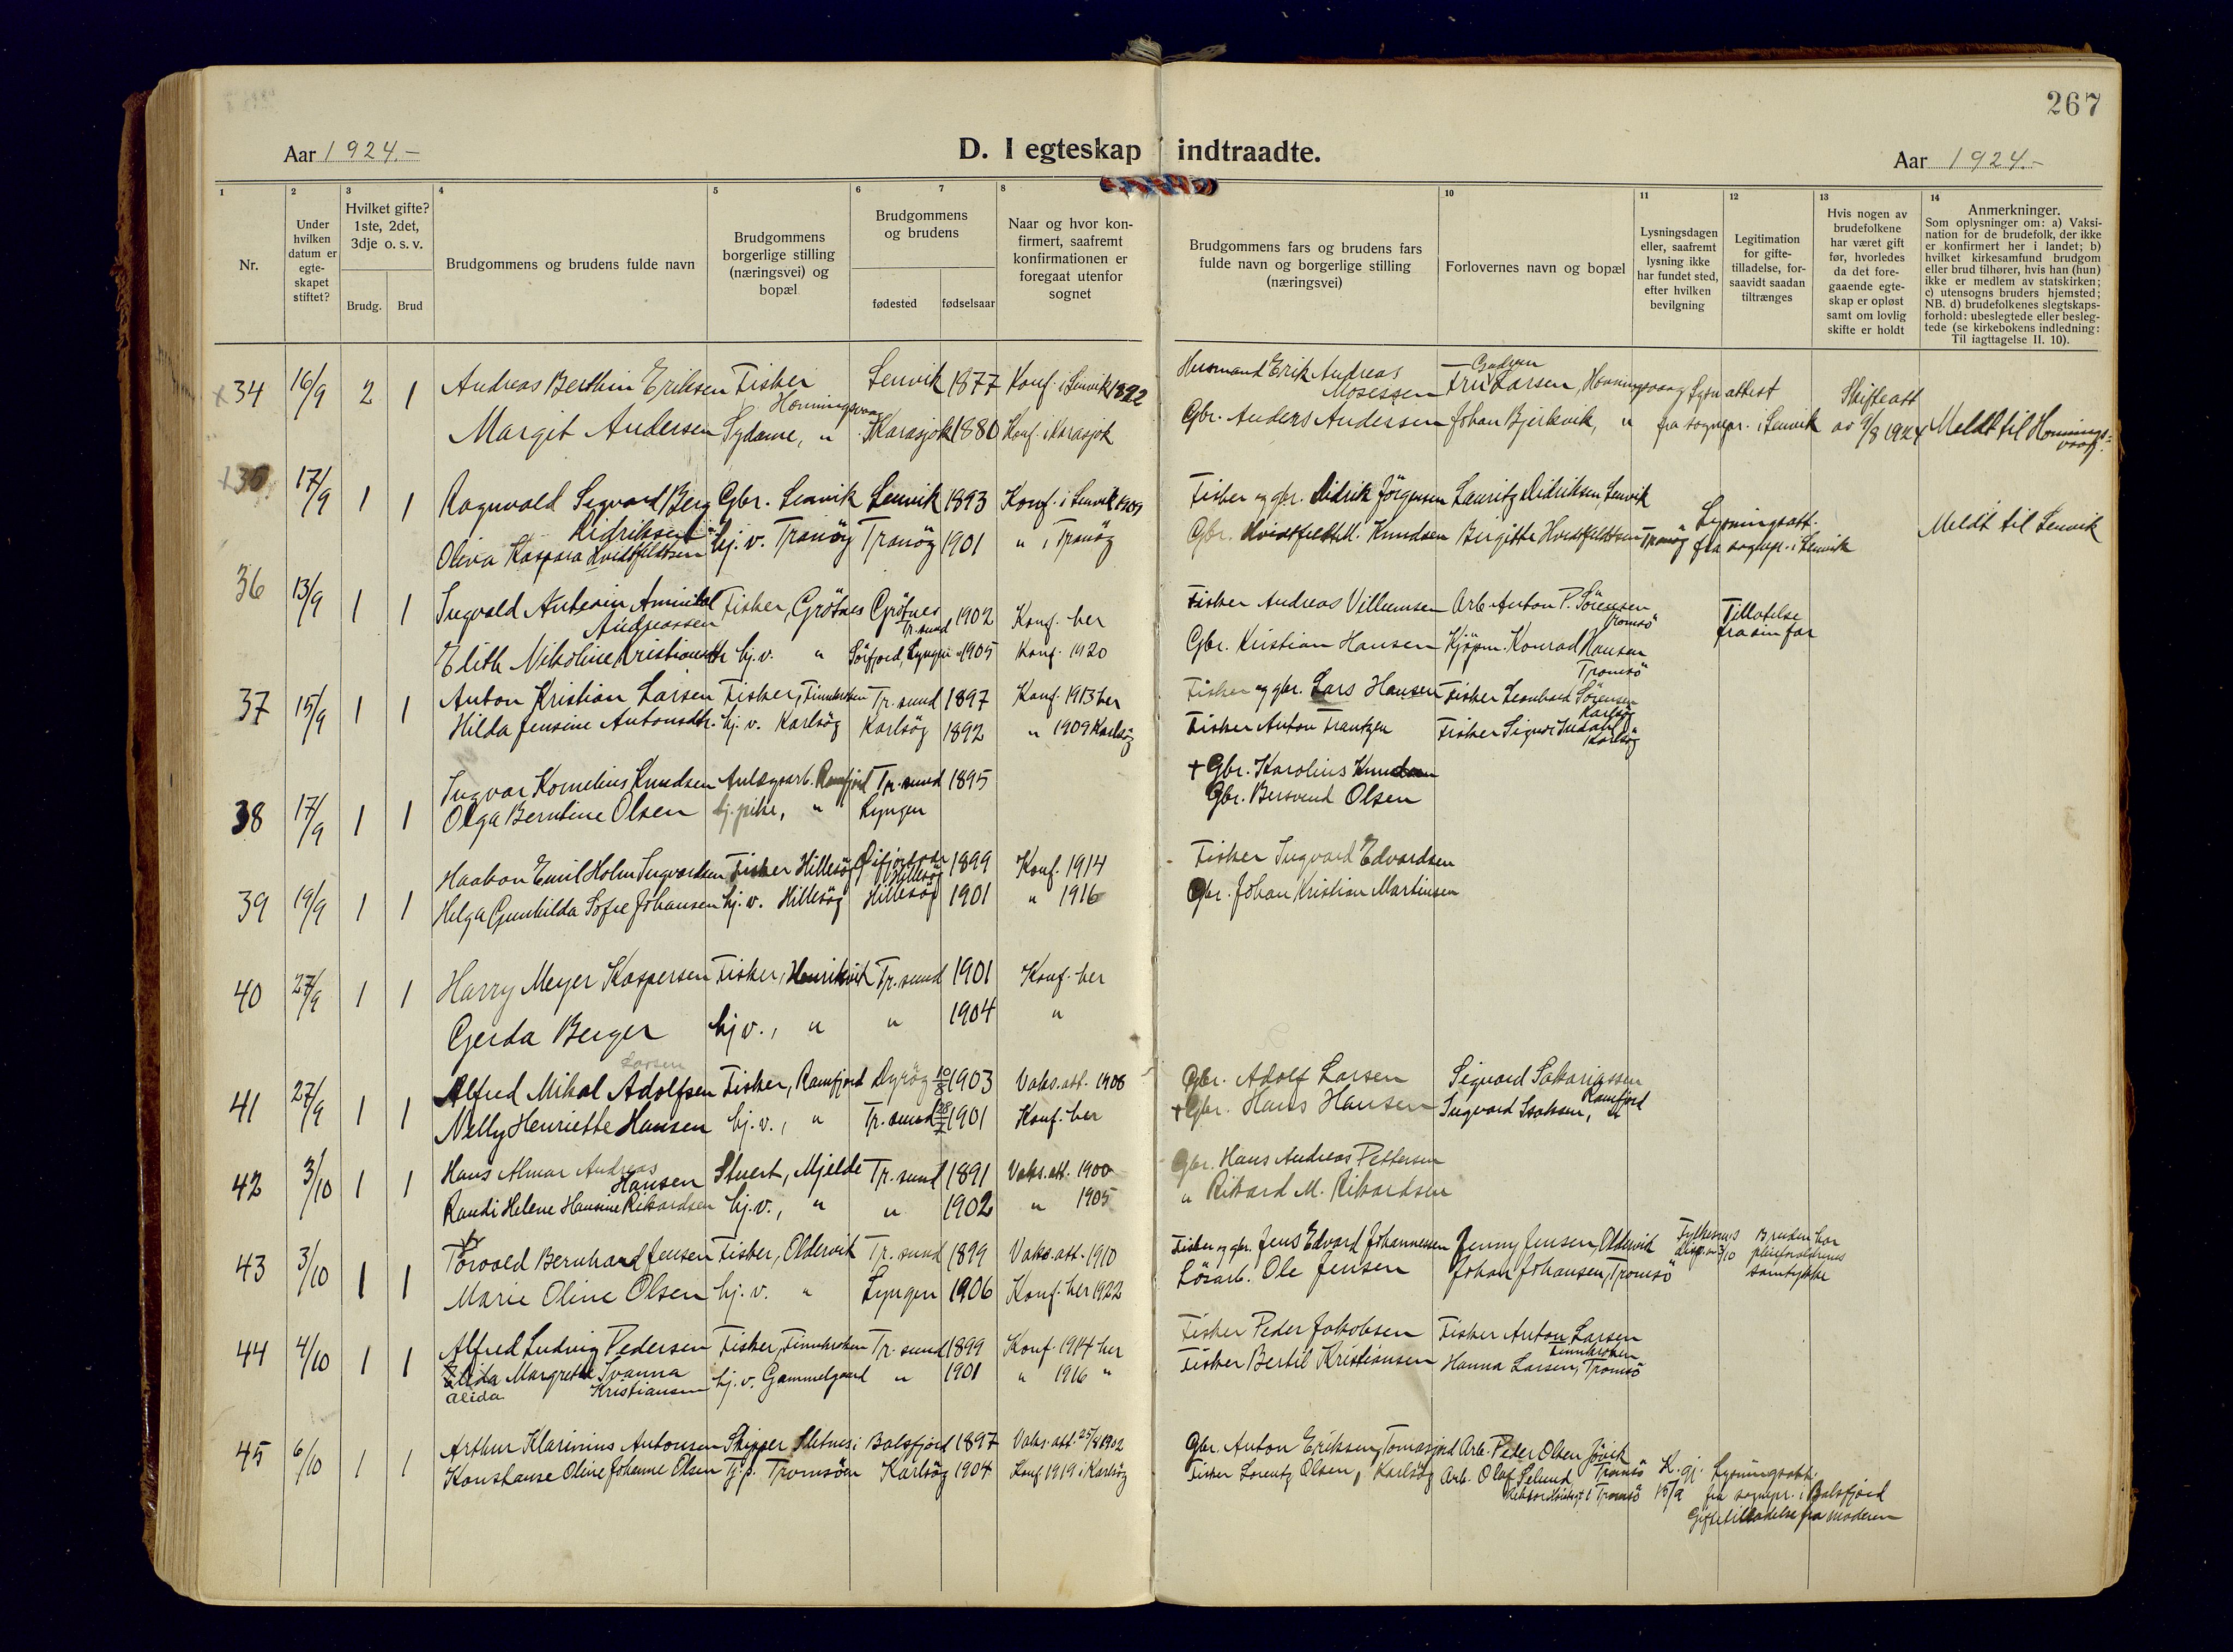 267
Aar 1924.-
D. I egteskap indtraadte.
Aar 1924.-
1
2
3
4
5
6
7
8
10
11
12
13
14
Nr.
Under hvilken datum er egte-skapet stiftet?
Hvilket gifte? 1ste, 2det, 3dje o. s. v.
Brudg.
Brud
Brudgommens og brudens fulde navn
Brudgommens borgerlige stilling (næringsvei) og bopæl
Brudgommens og brudens
fødested
fødselsaar
Naar og hvor kon-firmert, saafremt konfirmationen er foregaat utenfor sognet
Brudgommens fars og brudens fars fulde navn og borgerlige stilling (næringsvei)
Forlovernes navn og bopæl
Lysningsdagen eller, saafremt lysning ikke har fundet sted, efter hvilken bevilgning
Legitimation for gifte-tilladelse, for-saavidt saadan tiltrænges
Hvis nogen av brudefolkene har været gift før, hvorledes da det fore-gaaende egte-skap er opløst samt om lovlig skifte er holdt
Anmerkninger.
Som oplysninger om: a) Vaksi-nation for de brudefolk, der ikke er konfirmert her i landet; b) hvilket kirkesamfund brudgom eller brud tilhører, hvis han (hun) ikke er medlem av statskirken; c) utensogns bruders hjemsted; NB. d) brudefolkenes slegtskaps-forhold: ubeslegtede eller besleg-tede (se kirkebokens indledning: Til iagttagelse II. 10).
x34 16/9 2 1 Andreas Berthin Eriksen Fisker Honningsvaag Lenvik 1877 Konf. i Lenvik 1892 Husmand Erik Andreas Mosessen Fru Larsen, Honningsvaag Lysn attest Skifteatt
Margit Andersen Sydame, " Karasjok 1880 Konf. i Karasjok Gbr. Anders Andersen Johan Bjerkvik, " fra sognepr. i Lenvik av 9/8 1924 Meldt til Honningsvaag.
17/9 1 1 Ragnvald Sigvard Berg Didriksen Gbr. Lenvik Lenvik 1893 Konf. i Lenvik 1909 Fisker og gbr. Didrik Jörgensen Lauritz Didriksen, Lenvik
Oliva Kaspara Hvidtfeldtsen hj. v. Tranöy Tranöy 1901 " i Tranöy Gbr. Hvidtfeldt M. Knudsen Birgitte Hvidtfeldtsen Tranöy Lysningsatt. fra sognepr. i Lenvik Meldt til Lenvik
36 13/9 1 1 Ingvald Andreassen Fisker, Grötnes Grötnes Tr. sund 1902 Konf. her Fisker Andreas Villumsen Arb. Anton P. Sörensen Tromsö Tillatelse fra sin far
Elith Nikoline Kristiansdtr hj.v. " Sörfjord, Lyngen 1905 Konf. 1920 Gbr. Kristian Hansen Kjöpm. Konrad Hansen Tromsö
37 15/9 1 1 Anton Kristian Larsen Fisker, Finnkroken Tr. sund 1897 Konf. 1913 her Fisker og gbr. Lars Hansen Fisker Leonhard Sörensen Karlsöy
Hilda Jensine Antonsdtr. hj. v. Karlsöy Karlsöy 1892 " 1909 Karlsöy Fisker Anton Frantzen Fisker Karlsöy
38 17/9 1 1 Ingvar Kornelius Knudsen Anlægsarb. Ramfjord Tr. sund 1895 + Gbr. Karolius Knudsen
Olga Berntine Olsen hj. pike, " Lyngen Gbr. Bersvend Olsen
39 19/9 1 1 Haakon Emil Holm Ingvardsen Fisker Hillesöy Hillesöy 1899 Konf. 1914 Fisker Ingvard Edvardsen
Helga Gunhilda Sofie Johansen hj. v. Hillesöy Hillesöy 1901 " 1916 Gbr. Johan Kristian Martinsen
40 27/9 1 1 Harry Meyer Kaspersen Fisker, Henrikvik Tr. sund 1901 Konf. her
Gerda Berger hj v., " " 1904 "
41 27/9 1 1 Alfred Mikal Adolfsen Larsen Fisker, Ramfjord Dyröy 10/8 1903 Vaks.att. 1908 Gbr. Adolf Larsen Sigvard Sakariassen Ramfjord
Nelly Henriette Hansen hj. v., " Tr. sund 1901 Konf. her + Gbr. Hans Hansen Ingvard Isaksen, "
42 3/10 1 1 Hans Almar Andreas Hansen Stuert, Mjelde Tr. sund 1891 Vaks. att. 1900 Gbr. Hans Andreas Pettersen
Randi Helene Hansine Rikardsen hj. v., " " 1902 " 1905 " Rikard M. Rikardsen
43 3/10 1 1 Torvald Bernhard Jensen Fisker, Oldervik Tr. sund 1899 Vaks. att. 1910 Fisker og gbr. Jens Edvard Johannessen Jenny Jensen, Oldervik Fylkesm.s disp. av 3/10 Bruden har pleieforældrenes samtykke
Marie Oline Olsen hj. v. " Lyngen 1906 Konf. her 1922 Lösarb. Ole Jensen Johan Johansen, Tromsö
44 4/10 1 1 Alfred Ludvig Pedersen Fisker, Finnkroken Tr. sund 1899 Konf. 1914 her Fisker Peder Jakobsen Fisker Anton Larsen Finnkroken
Elida Margrethe Ivanna Kristiansen hj. v. Gammelgaard " 1901 " 1916 " Fisker Bertil Kristiansen Hanna Larsen, Tromsö
Alida
45 6/10 1 1 Arthur Klarinius Antonsen Skipper Sletnes i Balsfjord 1897 Vaks. att. 25/8 1902 Gbr. Anton Eriksen, Tomasjord Arb. Peder Olsen Tromsö
Konstanse Oline Johanne Olsen Tj. p. Tromsöen Karlsöy 1904 Konf 1919 i Karlsöy Fisker Lorentz Olsen, Karlsöy Arb. Olaf Selund Tromsö K. gj. 15/9 Lysningsatt. fra sognepr. i Balsfjord
Giftetilladelse fra moderen